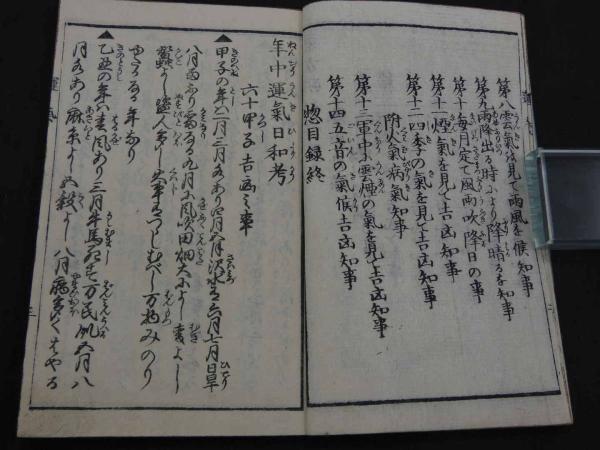 第八雲氣を見て雨風を候知事
第九雨降出る時により降晴るを知事
第十毎月定て風雨吹降日の事
第十一煙氣を見て吉凶知事
第十二四季の氣を見て吉凶知事
附火氣病氣知事
第十三軍中に雲煙の氣を見て吉凶知事
第十四五音の氣候吉凶知事
惣目録終
年中運氣日和考
六十甲子吉凶之事
▲甲子の年は二月三月水あり四月五月洪水有六月七月日旱
八月雨ふり雷なる九月小風吹田畑大によし麦よし
蠶よし
年なり
▲乙丑の年は春風あり三月牛馬死す万民飢五月八
月水あり麻米よし五穀よし八月病多くはやる